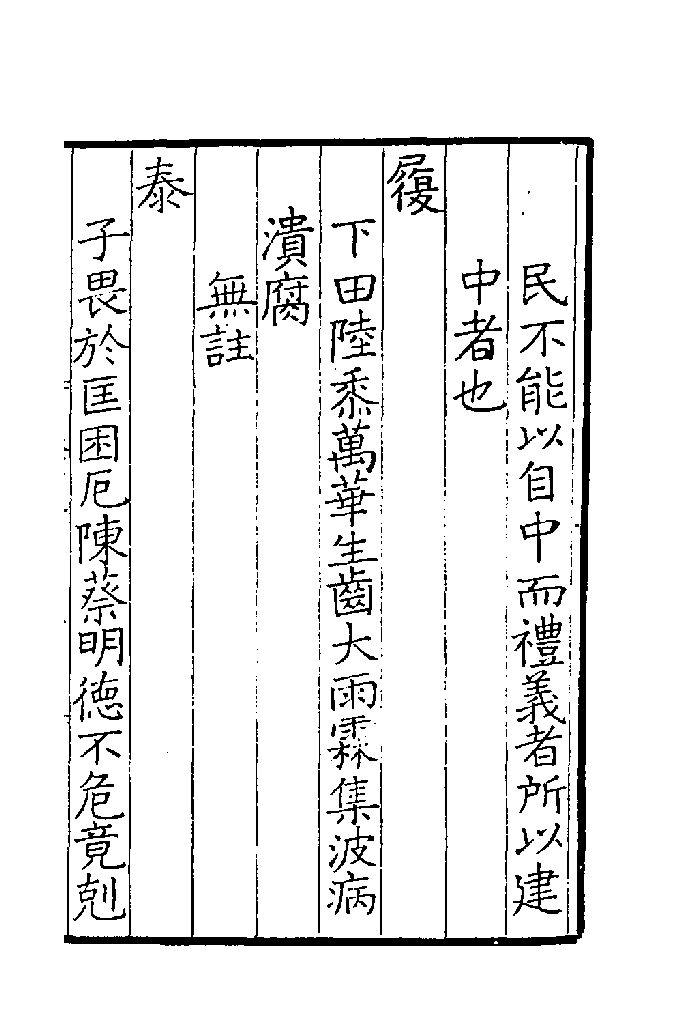 民不能以自中而禮義者所以建
中者也
履
下田陸黍萬華生齒大雨霖集波病
潰腐
無註
泰
子畏於匡困厄陳蔡明德不危竟剋